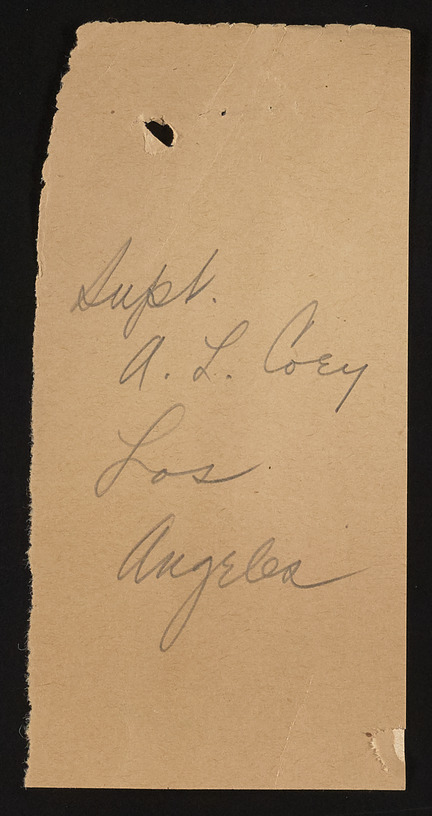 Supt.
A. L. Coey
Los
Angeles